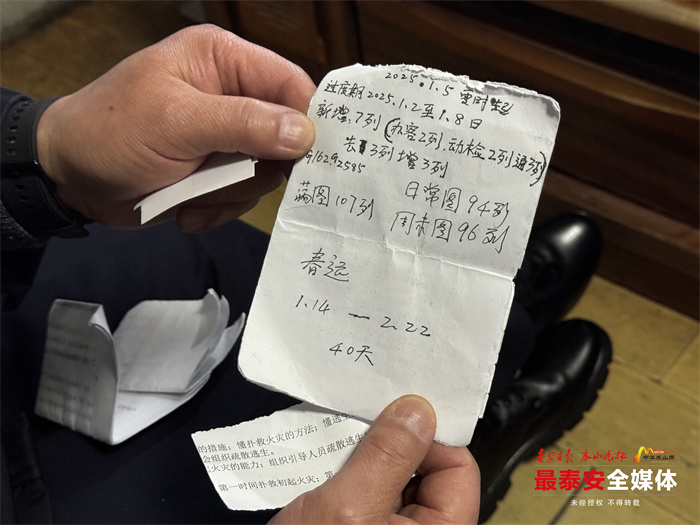 2025.1.5 零时
过度期 2025.1.2至1.8日
新增:7列(办客2列.动检2列通3列)
去 3列增3列
满图107列 日常图94列
周末图96列
春运
1.14 — 2.22
40天
的措施；懂扑救火灾的方法；懂逃生
会组织疏散逃生。
火灾的能力；组织引导人员疏散逃生
第一时间扑救初起火灾；第一
中华泰山网
最泰安全媒体
未经授权 不得转载